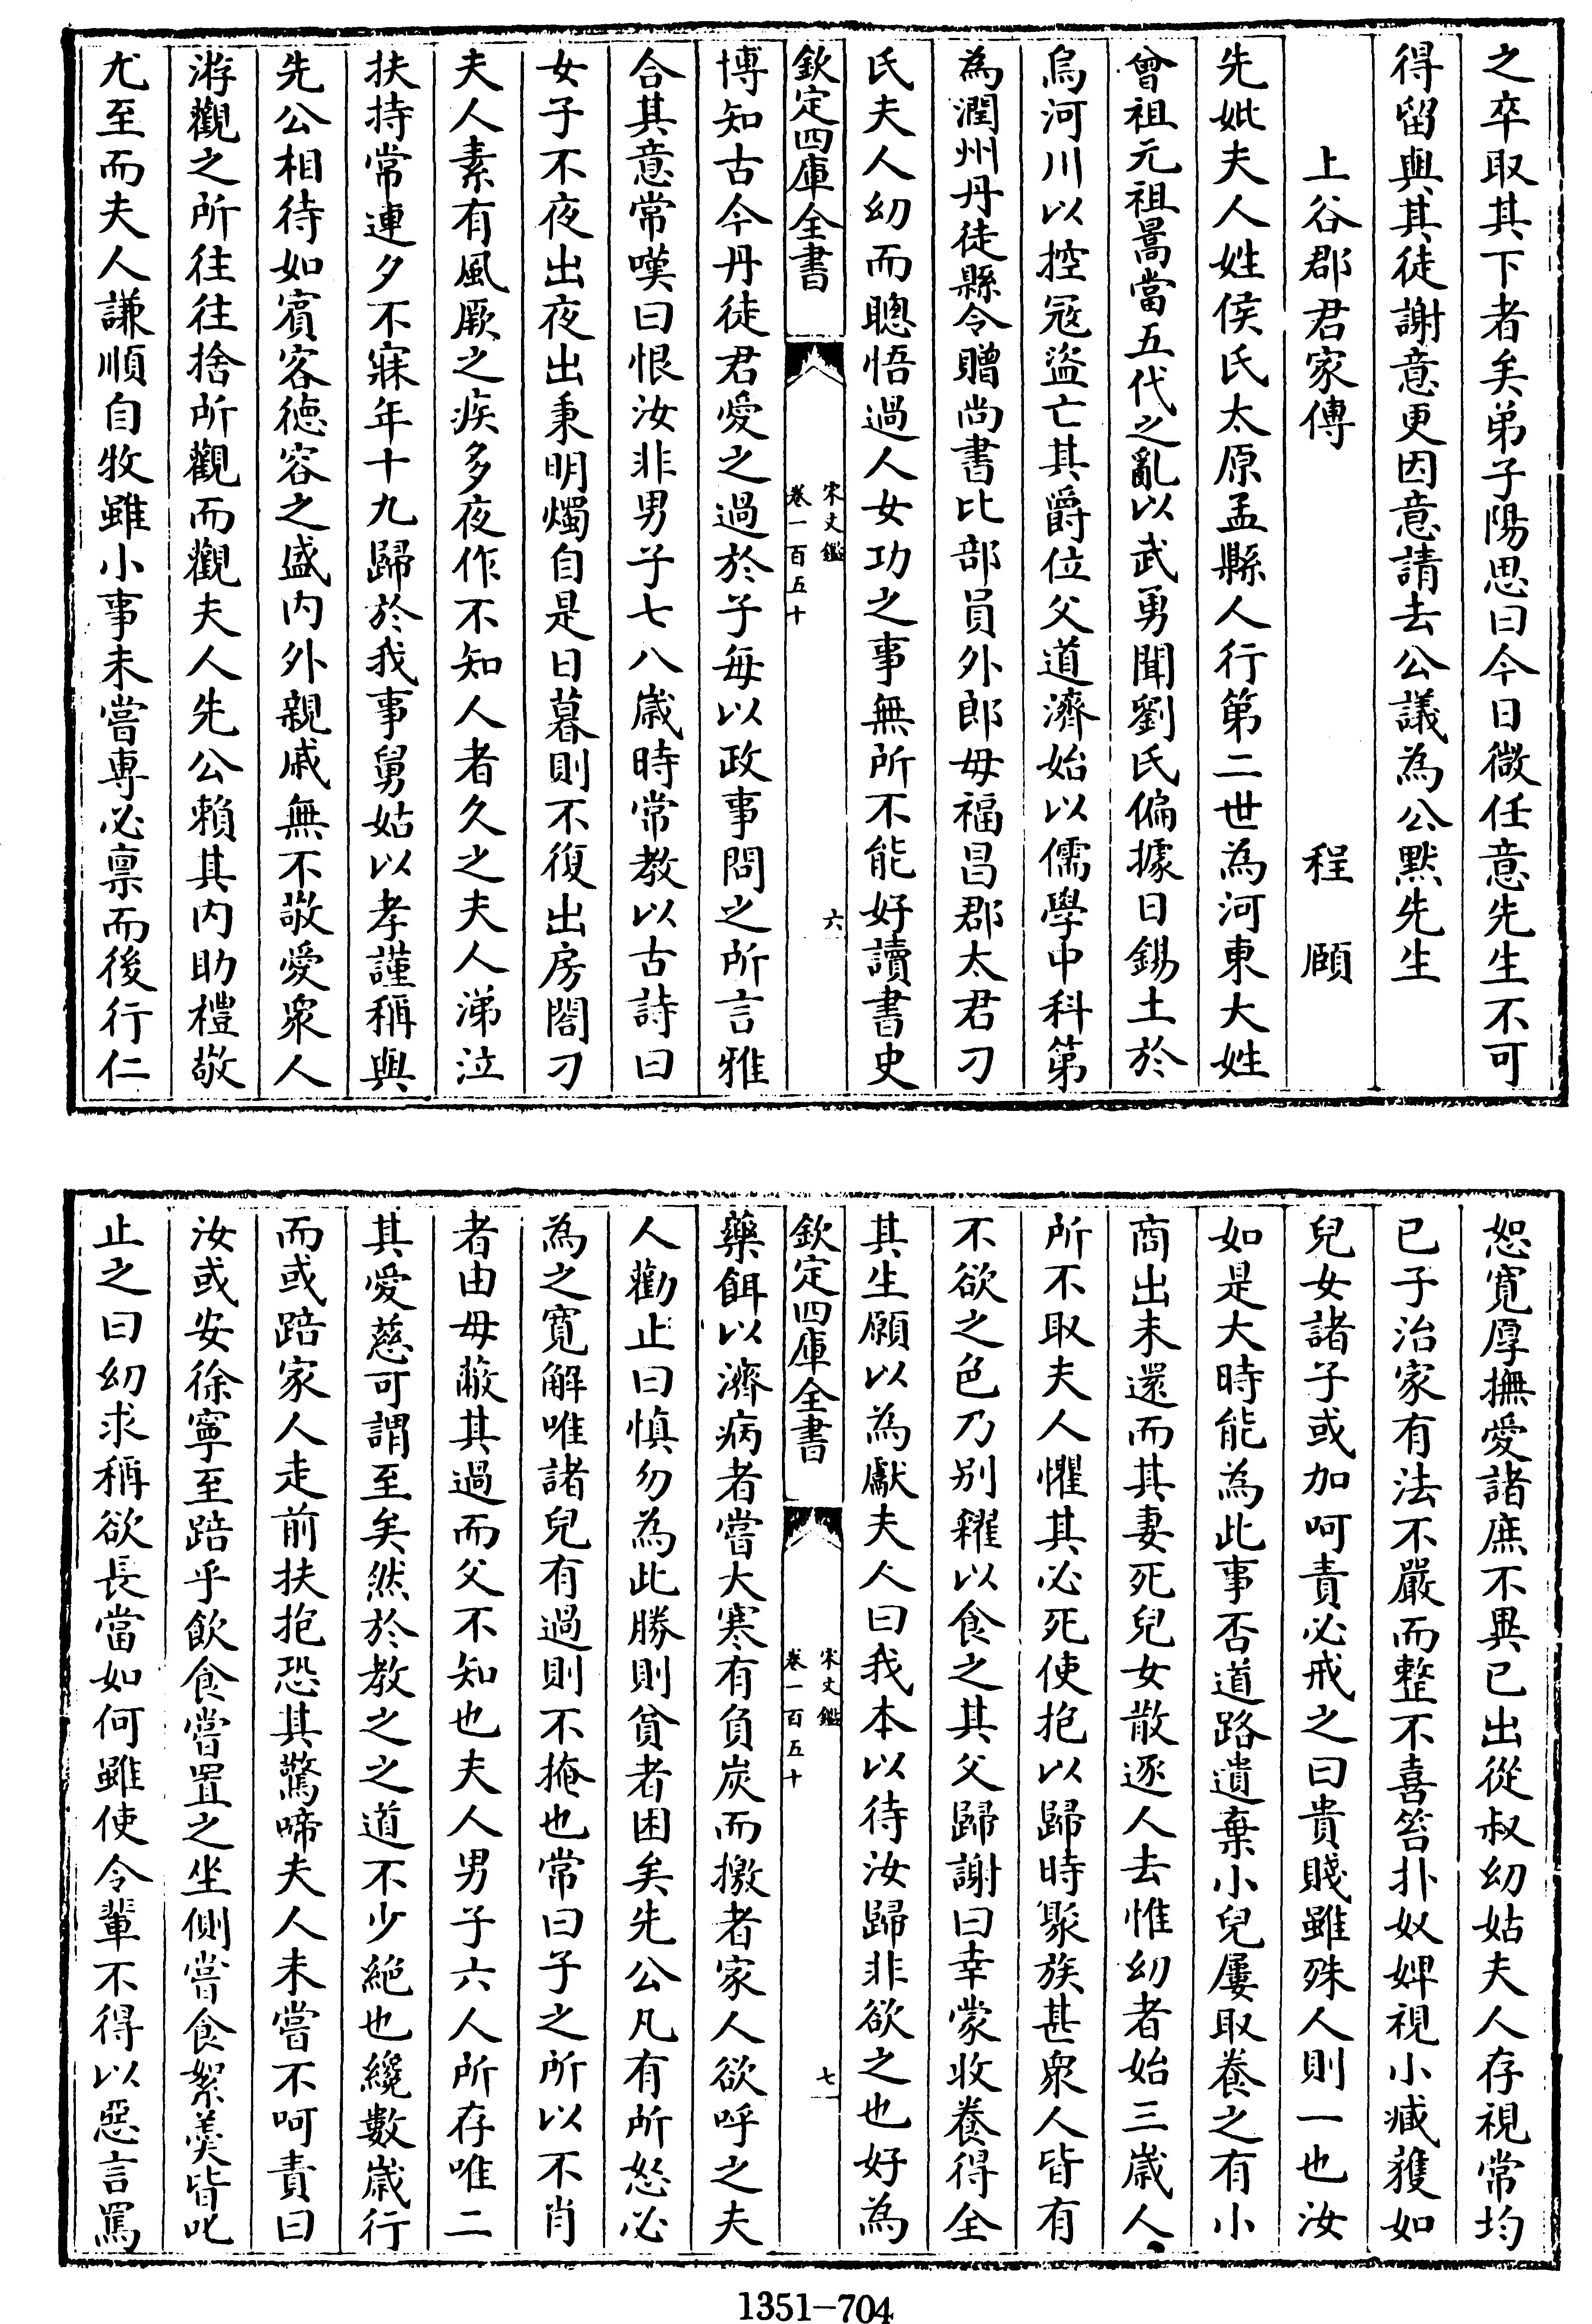 之卒取其下者矣弟子陽思曰今日微任意先生不可
得留與其徒謝意更因意請去公議為公黙先生
上谷郡君家傳 程頥
先妣夫人姓侯氏太原孟縣人行第二世為河東大姓
曾祖元祖暠當五代之亂以武勇聞劉氏偏據日錫土於
烏河川以控冦盜亡其爵位父道濟始以儒學中科第
為潤州丹徒縣令贈尚書比部員外郎母福昌郡太君刁
氏夫人幼而聰悟過人女功之事無所不能好讀書史
欽定四庫全書
宋文鑑
卷一百五十
六
博知古今丹徒君愛之過於子每以政事問之所言雅
合其意常嘆曰恨汝非男子七八歳時常教以古詩曰
女子不夜出夜出秉明燭自是日暮則不復出房閤刁
夫人素有風厥之疾多夜作不知人者久之夫人涕泣
扶持常連夕不寐年十九歸於我事舅姑以孝謹稱與
先公相待如賓客德容之盛内外親戚無不敬愛衆人
游觀之所往往捨所觀而觀夫人先公賴其内助禮敬
尤至而夫人謙順自牧雖小事未嘗専必禀而後行仁
恕寛厚撫愛諸庶不異已出從叔幼姑夫人存視常均
已子治家有法不嚴而整不喜笞扑奴婢視小臧獲如
兒女諸子或加呵責必戒之曰貴賤雖殊人則一也汝
如是大時能為此事否道路遺棄小兒屢取養之有小
商出未還而其妻死兒女散逐人去惟幼者始三歳人
所不取夫人懼其必死使抱以歸時聚族甚衆人皆有
不欲之色乃别糴以食之其父歸謝曰幸蒙收養得全
其生願以為獻夫人曰我本以待汝歸非欲之也好為
欽定四庫全書
宋文鑑
卷一百五十
七
藥餌以濟病者嘗大寒有負炭而撽者家人欲呼之夫
人勸止曰慎勿為此勝則貧者困矣先公凡有所怒必
為之寛解唯諸兒有過則不掩也常曰子之所以不肖
者由母蔽其過而父不知也夫人男子六人所存唯二
其愛慈可謂至矣然於教之之道不少絶也纔數歳行
而或踣家人走前扶抱恐其驚啼夫人未嘗不呵責曰
汝或安徐寧至踣乎飲食嘗置之坐側嘗食絮羮皆叱
止之曰幼求稱欲長當如何雖使令輩不得以惡言罵
1351-704